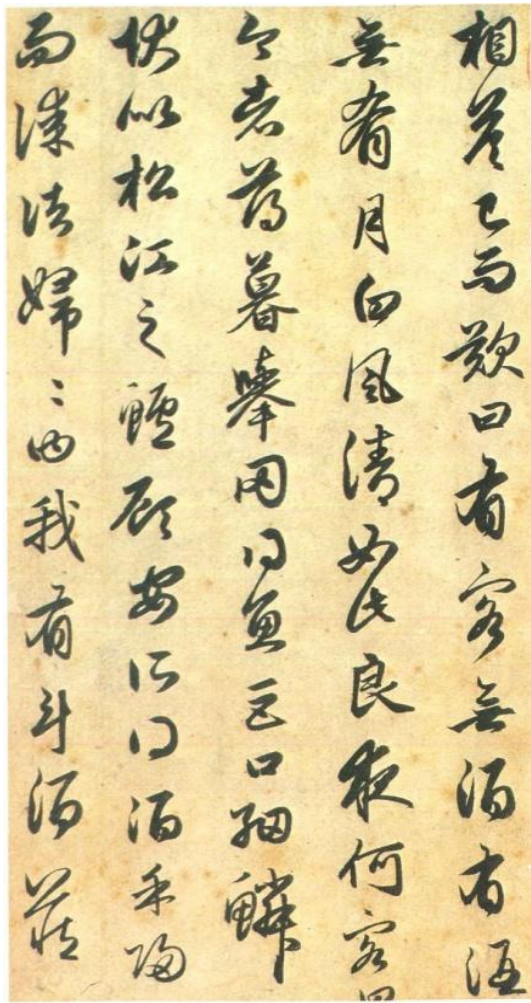 相答已而歎曰有客無酒有酒
無肴月白風清如此良夜何客曰
今者薄暮舉网得魚巨口細鱗
狀似松江之鱸顧安所得酒乎歸
而謀諸婦〻曰我有斗酒藏